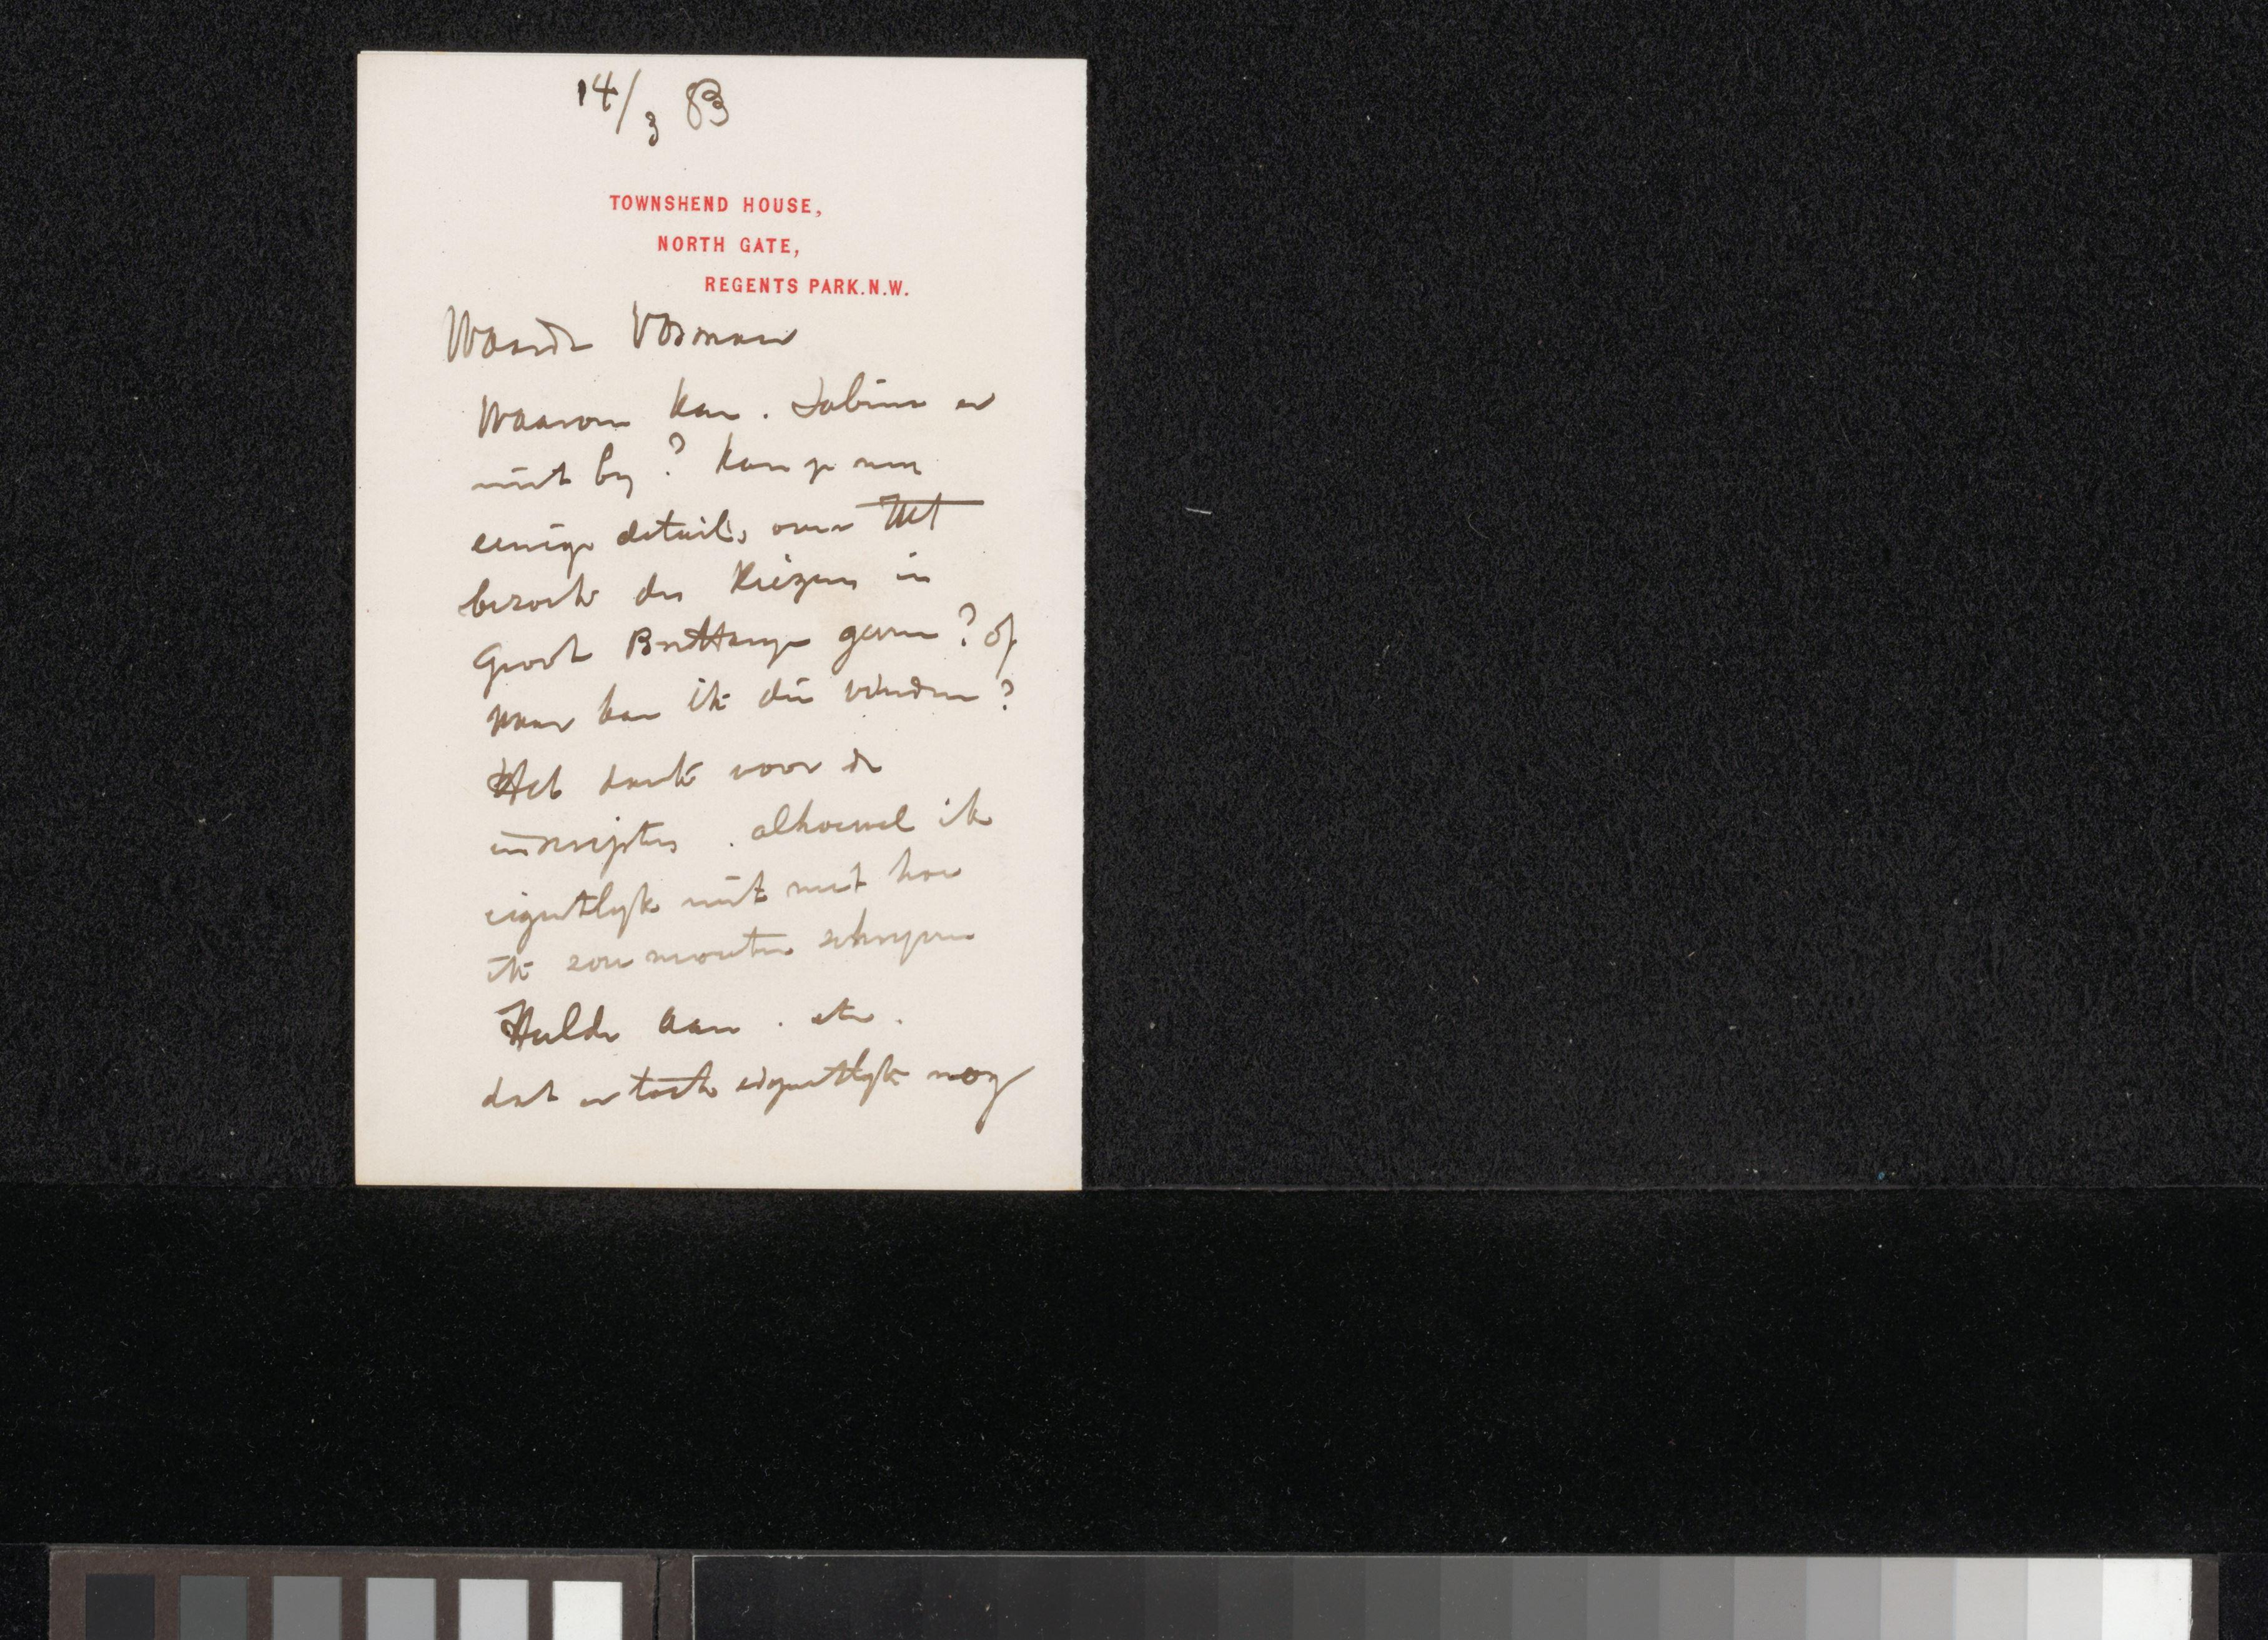 14/3 83
TOWNSHEND HOUSE,
NORTH GATE,
REGENTS PARK.N.W.
Waarde Vosmaer
Waarom kan . Sabina er
niet by ? kan je mee
eenige details over Het
bezoek des Keizers in
Groot Brittanje geven ? of
waar kan ik die vinden ?
Heb dank voor de
inscripties . alhoewel ik
eigentlyk niet weet hoe
ik zou moeten schryven
Hulde aan . etc .
dat er toch eigentlyk nog